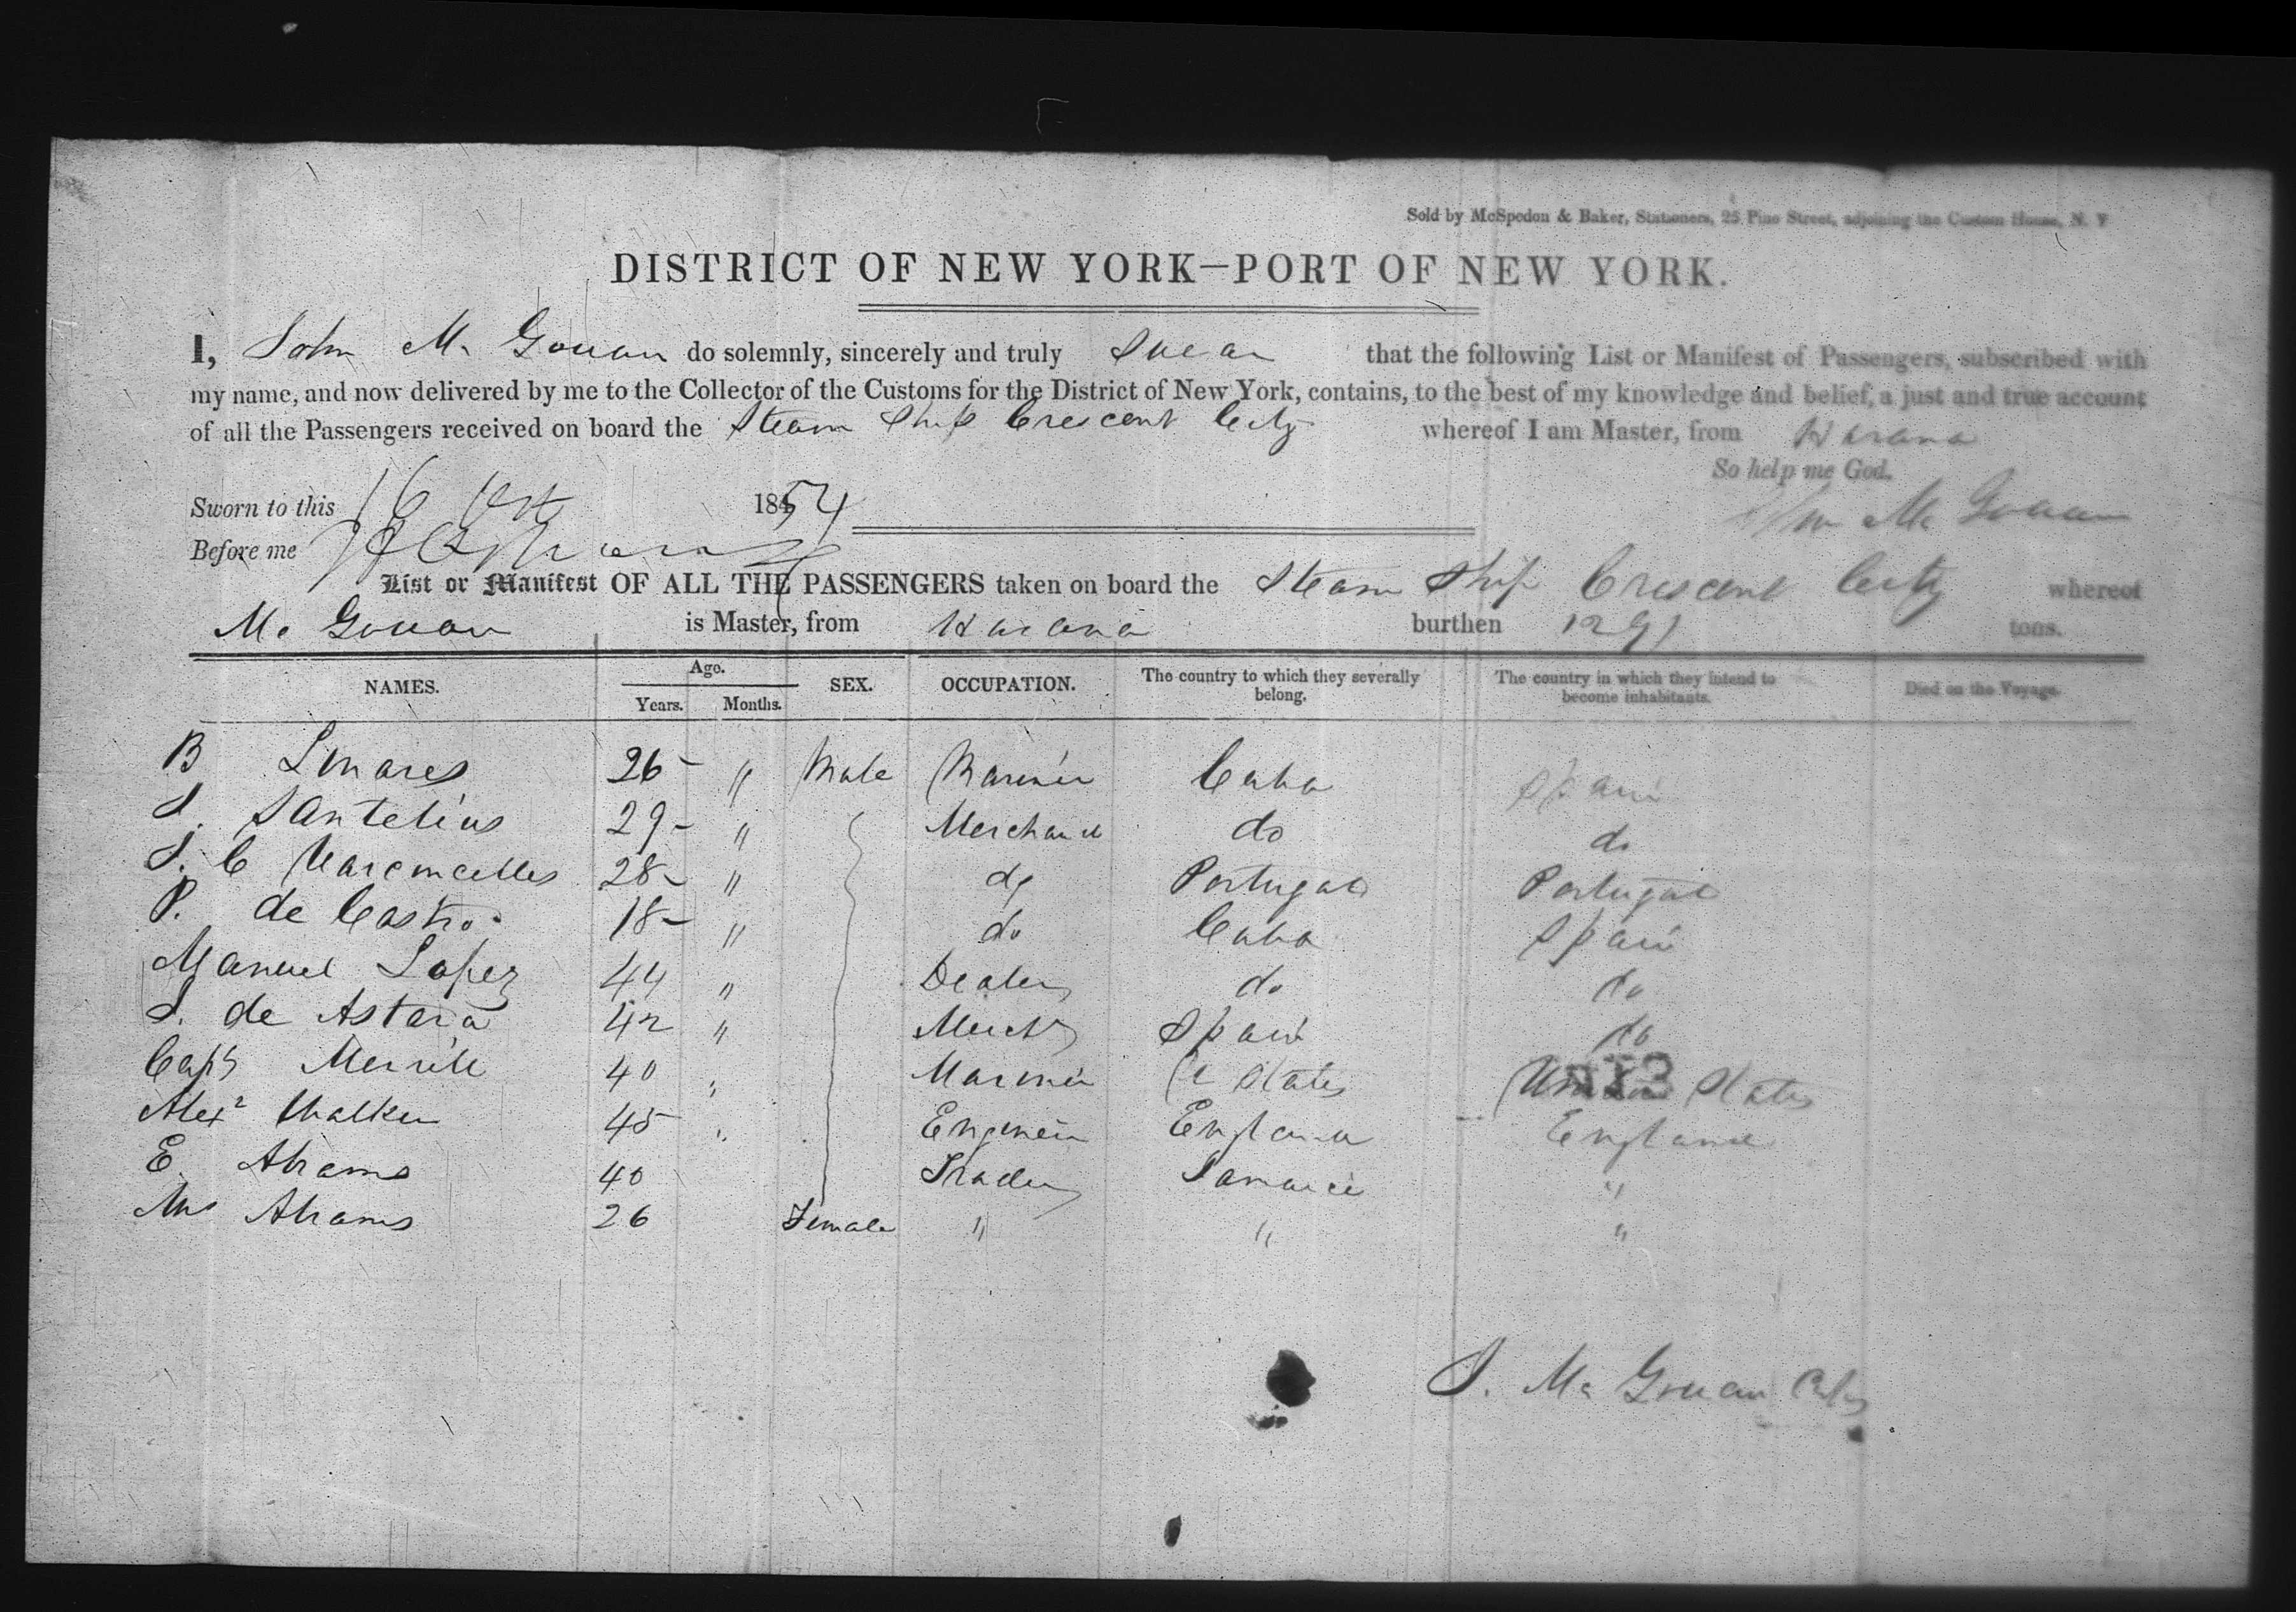 Sold by McSpedon & Baker, Stationers, 25 Pine Street, adjoining the Custom House, N. Y
DISTRICT OF NEW YORK—PORT OF NEW YORK.
I, John Mc Gowan do solemnly, sincerely and truly Swear that the following List or Manifest of Passengers, subscribed with
my name, and now delivered by me to the Collector of the Customs for the District of New York, contains, to the best of my knowledge and belief, a just and true account
of all the Passengers received on board the Steam Ship Crescent City whereof I am Master, from Havana
So help me God.
Sworn to this 16 Oct 1854
John Mc Gowan
Before me
List or Manifest OF ALL THE PASSENGERS taken on board the Steam Ship Crescent City whereof
Mc Gowan is Master, from Havana burthen 1291 tons.
NAMES. Age. Years. Months. SEX. OCCUPATION. The country to which they severally belong. The country in which they intend to become inhabitants. Died on the Voyage.
B Linares 26 - " Male Mariner Cuba Spain
S. Santelius 29 - " Merchant do do
J. C 28 - " do Portugal Portugal
P. de Castro 18 - " do Cuba Spain
Manuel Lopez 44 " Dealer do do
J. de Astara 42 " Mercht Spain do
Capt Merrill 40 " Mariner U States United States
Alexr Walker 45 " Engineer England England
E. Abrams 40 Trader Jamaica "
Mrs Abrams 26 Female " " "
J. Mc Gowan